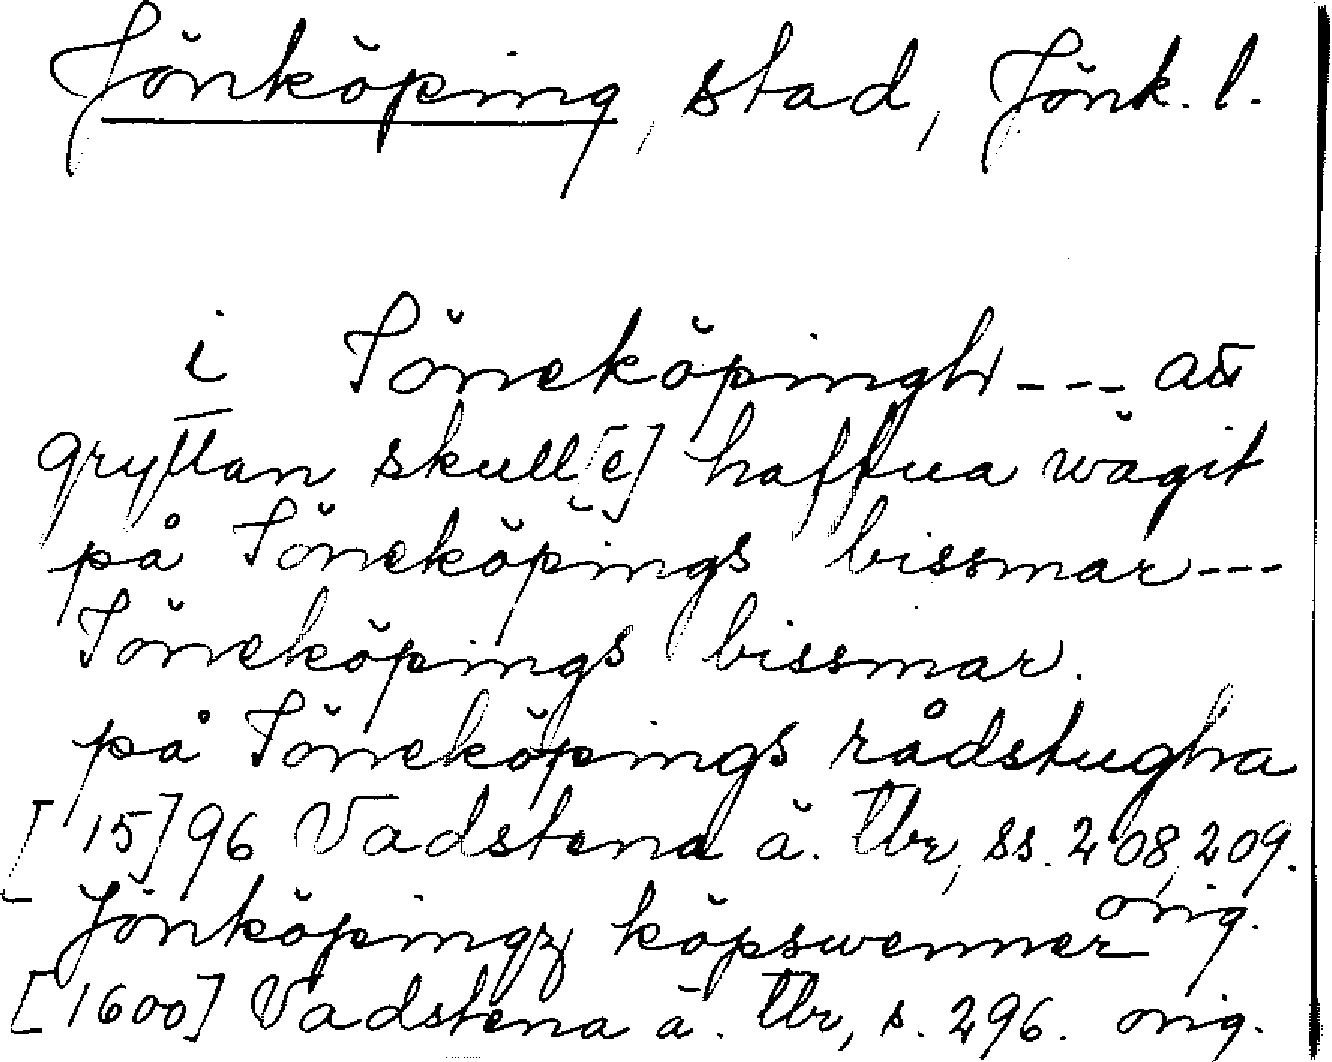 Jönköping, stad, Jönk. l.
i Jöneköpingh --- att
gryttan skull[e] haffua wägit
på Jöneköpings bissmar ---
Jöneköpings bissmar.
på Jöneköpings rådstugha
[15]96 Vadstena ä. tbr, ss. 208, 209.
orig.
Jönköpingz köpswenner
[1600] Vadstena ä. tbr, s. 296. orig.